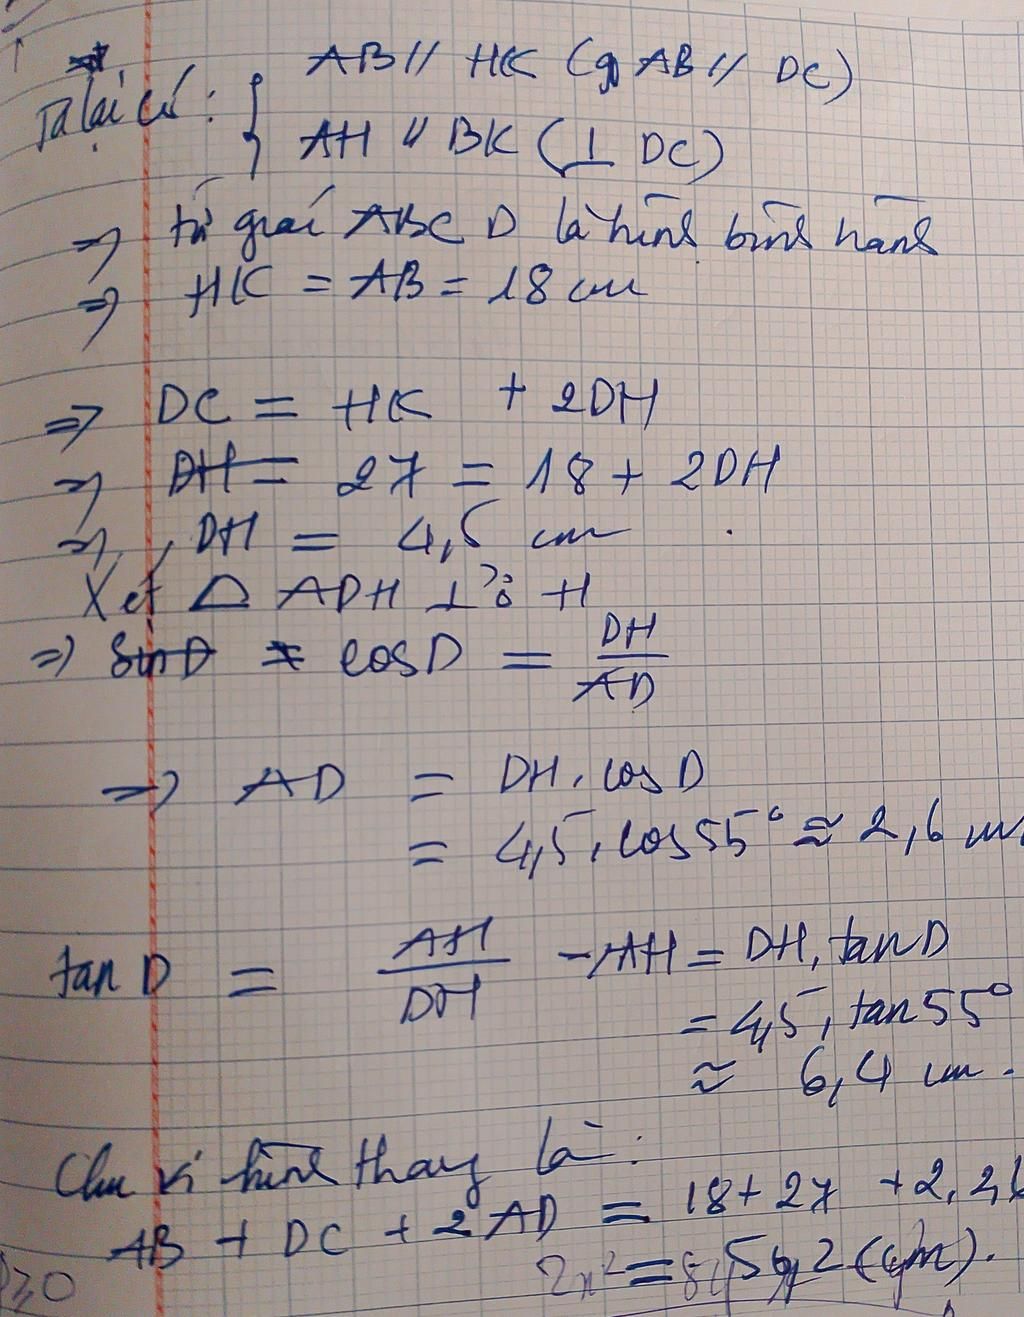 Ta lại có : { AB // HK (gt AB // DC)
AH // BK (⊥ DC)
=> tứ giác ABCD là hình bình hành
=> HK = AB = 18 cm
=> DC = HK + 2DH
=> DH = 27 = 18 + 2DH
=> DH = 4,5 cm
Xét Δ ADH ⊥ H
=> SinD = cosD = DH/AD
=> AD = DH . cos D
= 4,5 . cos 55° ≈ 2,6 cm
tan D = AH/DH → AH = DH . tan D
= 4,5 . tan 55°
≈ 6,4 cm .
Chu vi hình thang là :
AB + DC + 2AD = 18 + 27 + 2.2,6
= 50,2 (cm).
≥0